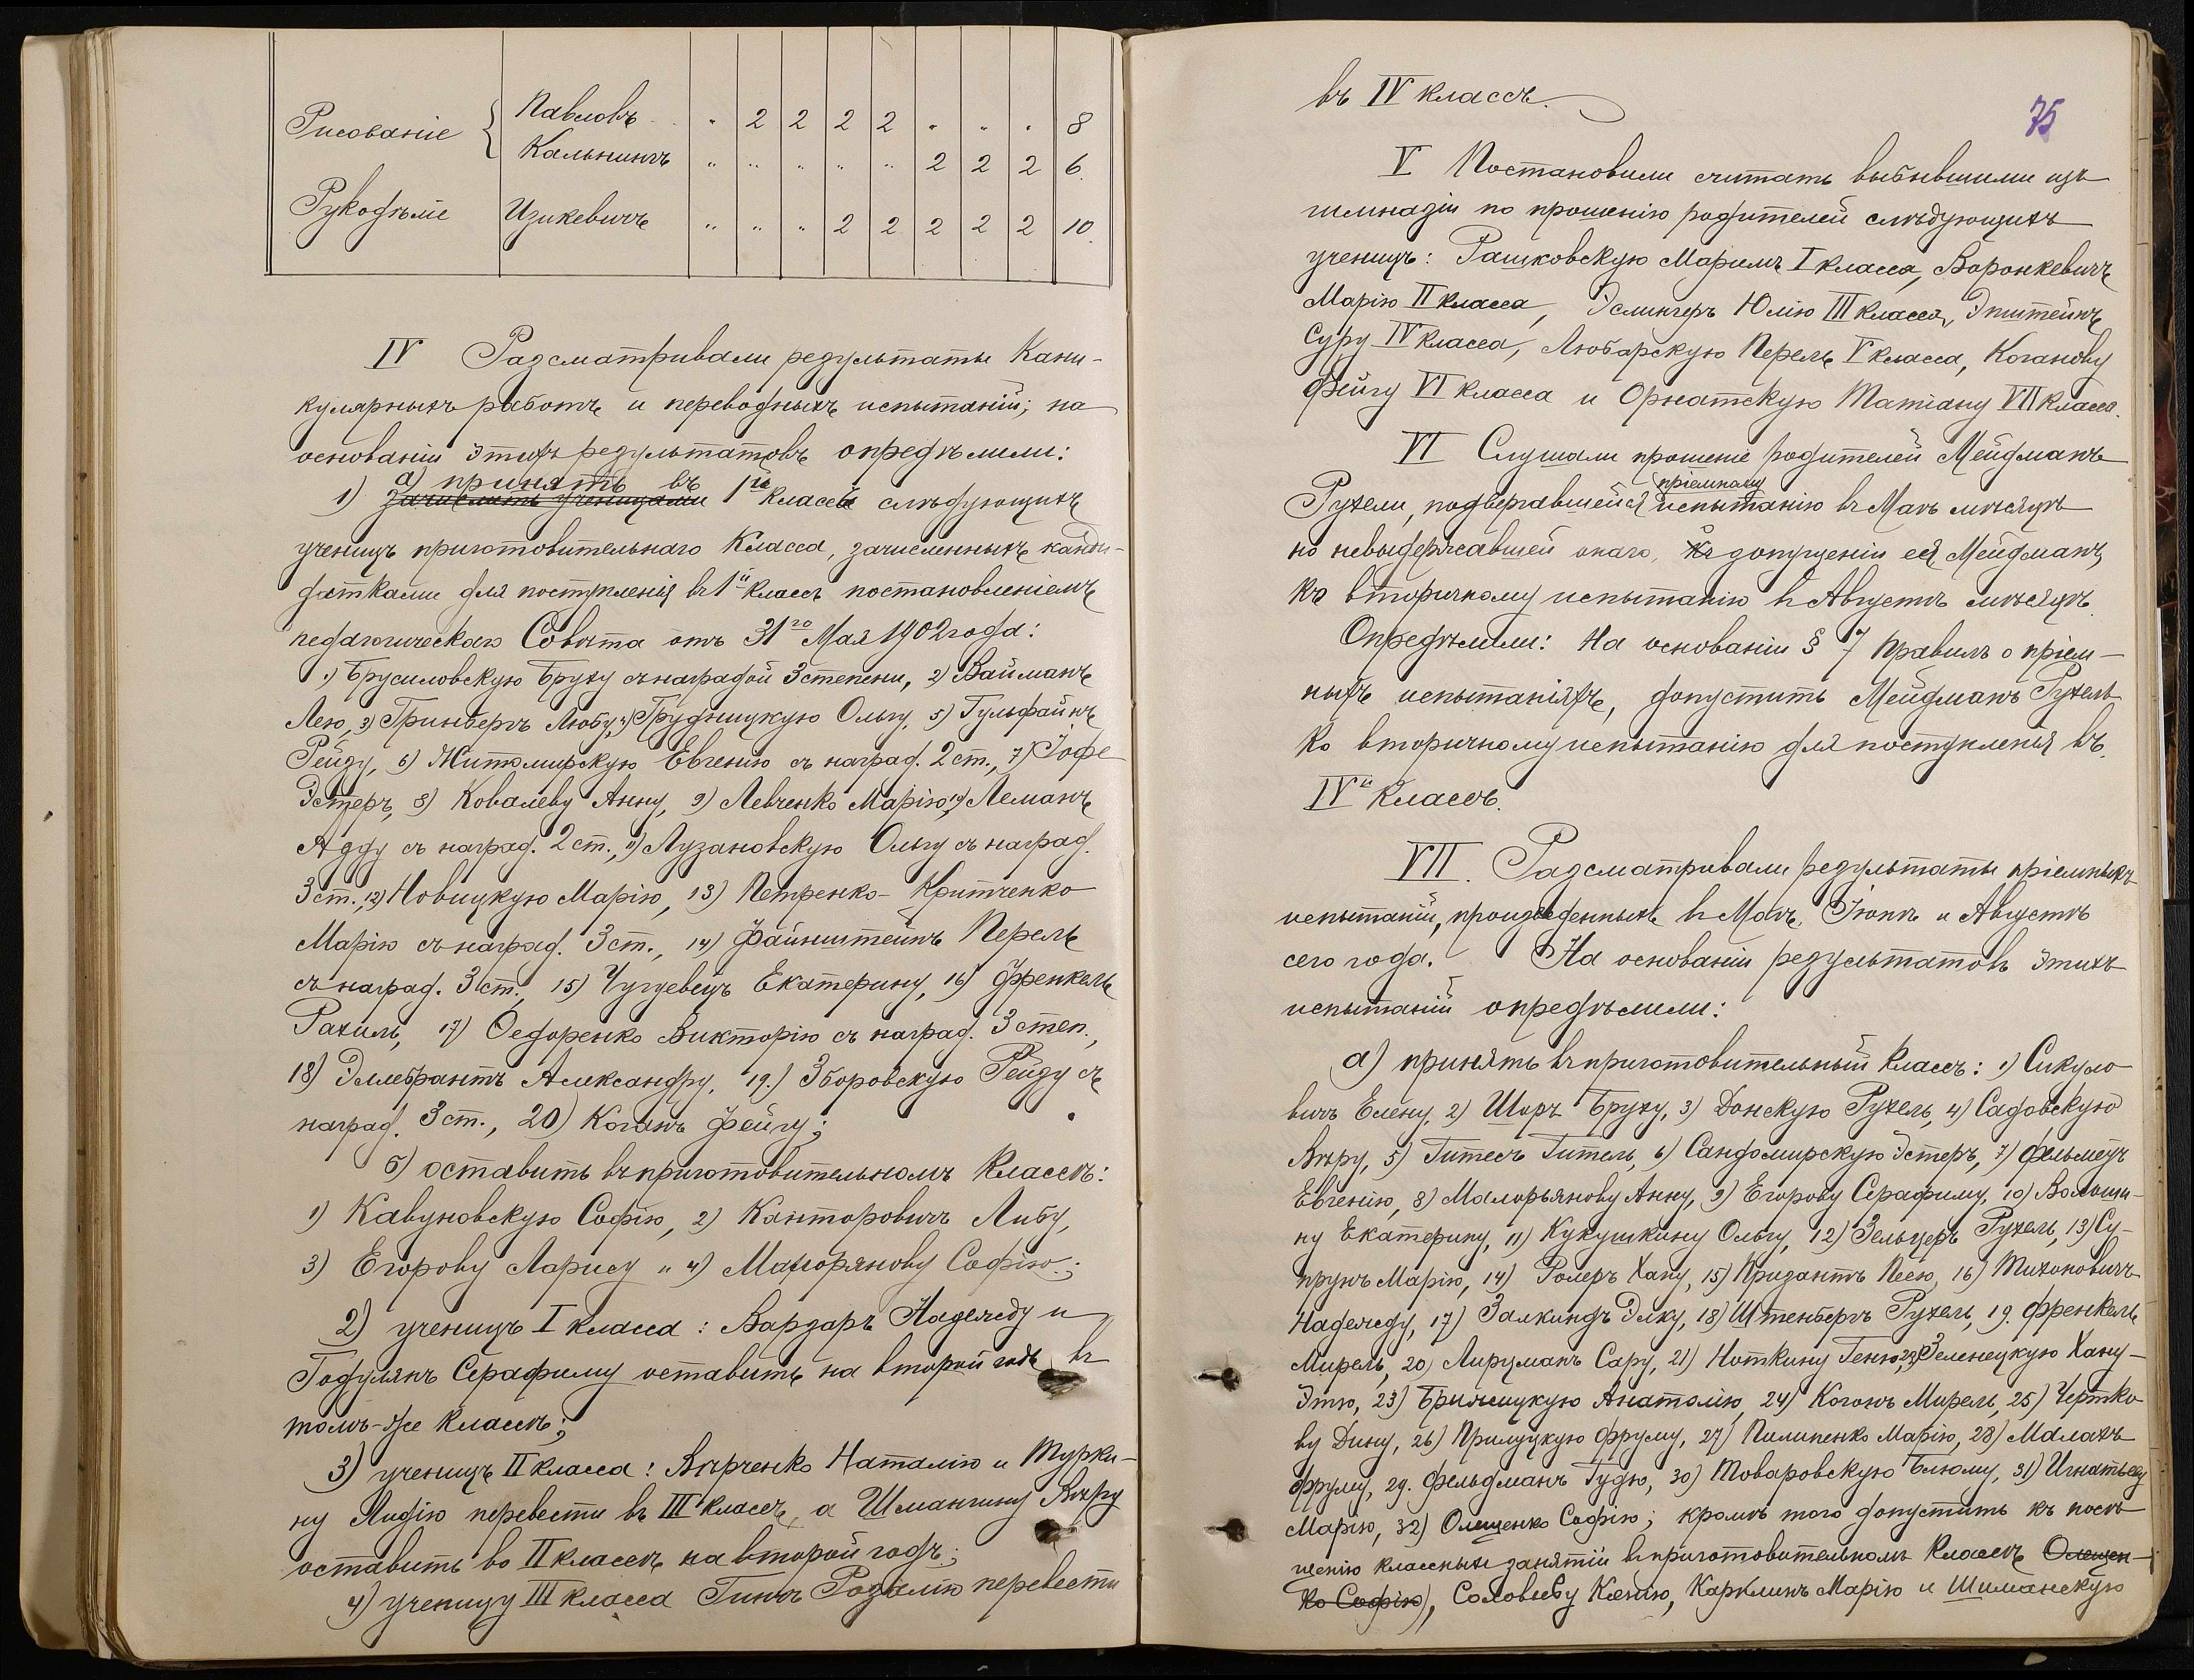 Рисованіе { Павловъ " 2 2 2 2 " " " 8
Кальнингъ " " " " " 2 2 2 6.
Рукодѣліе Ицикевичъ " " " 2 2 2 2 2 10.
IV Разсматривали результаты Кани-
кулярныхъ работъ и переводныхъ испытаній; на
основаніи этихъ результатовъ опредѣлили:
а) принять въ
1) зачислить ученицами 1й классъ слѣдующихъ
ученицъ приготовительнаго Класса, зачисленныхъ канди-
датками для поступленія въ 1й классъ постановленіемъ
педагогическаго Совѣта отъ 31го Мая 1902 года:
1) Брусиловскую Бруху съ наградой 3 степени, 2) Вайманъ
Лею, 3) Гринбергъ Любу, 4) Грудницкую Ольгу, 5) Гульфайнъ
Рейзу, 6) Житомирскую Евгенію съ наград. 2 ст., 7) Іофе
Эстеръ, 8) Ковалеву Анну, 9) Левченко Марію, 10) Леманъ
Адду съ наград. 2 ст., 11) Лузановскую Ольгу съ наград.
3 ст., 12) Новицкую Марію, 13) Петренко-Критченко
Марію съ наград. 3 ст., 14) Файнштейнъ Перель
съ наград. 3 ст., 15) Чугуевецъ Екатерину, 16) Френкель
Рахиль, 17) Ѳедоренко Викторію съ наград. 3 степ.,
18) Эллебрантъ Александру, 19.) Зборовскую Рейзу съ
наград. 3 ст., 20) Коганъ Фейгу;
б) оставить въ приготовительномъ Классѣ:
1) Кавуновскую Софію, 2) Канторовичъ Либу,
3) Егорову Ларису и 4) Малорянову Софію.;
2) ученицъ I класса: Вардаръ Надежду и
Годулянъ Серафиму оставить на второй годъ въ
томъ-же Классѣ;
3) ученицъ II класса: Вѣрченко Наталію и Турки-
ну Лидію перевести въ III классъ, а Шмангину Вѣру
оставить во II классѣ на второй годъ;
4) ученицу III класса Гинъ Розалію перевести
въ IV классъ.
75
V Постановили считать выбывшими изъ
гимназіи по прошенію родителей слѣдующихъ
ученицъ: Рашковскую Маримъ I класса, Воронкевичъ
Марію II класса, Эслингеръ Юлію III класса, Эпштейнъ
Суру IV класса, Любарскую Перель V класса, Коганову
Фейгу VI класса и Орнатскую Татіану VII класса.
VI Слушали прошеніе родителей Мейдманъ
пріемному
Рухели, подвергавшейся испытанію въ Маѣ мѣсяцѣ
но невыдержавшей онаго, къ допущеніи ея, Мейдманъ,
къ вторичному испытанію въ Августѣ мѣсяцѣ.
Опредѣлили: На основаніи § 7 Правилъ о пріем-
ныхъ испытаніяхъ, допустить Мейдманъ Рухель
ко вторичному испытанію для поступленія въ
IVй Классъ.
VII. Разсматривали результаты пріемныхъ
испытаній, произведенныхъ въ Маѣ, Іюнѣ и Августѣ
сего года. На основаніи результатовъ этихъ
испытаній опредѣлили:
а) принять въ приготовительный Классъ: 1) Сикуло
вичъ Елену, 2) Шоръ Бруху, 3) Донскую Рухель, 4) Садовскую
Вѣру, 5) Гитесъ Гитель, 6) Сандомирскую Эстеръ, 7) Фельмецъ
Евгенію, 8) Малорьянову Анну, 9) Егорову Серафиму, 10) Волоши-
ну Екатерину, 11) Кукушкину Ольгу, 12) Зельцеръ Рухель, 13) Су-
прунъ Марію, 14) Ролеръ Хану, 15) Призантъ Песю, 16) Тихоновичъ
Надежду, 17) Залкиндъ Элку, 18) Штенбергъ Рухель, 19. Френкель
Мирель, 20) Лирцманъ Сару, 21) Ноткину Геню, 22) Зеленецкую Хану-
Этю, 23) Брилицкую Анатолію, 24) Коганъ Мирель, 25) Чертко
ву Дину, 26) Прилуцкую Фруму, 27) Пилипенко Марію, 28) Малахъ
Фруму, 29. Фельдманъ Гудю, 30) Товаровскую Блюму, 31) Игнатьеву
Марію, 32) Олещенко Софію; кромѣ того допустить къ посѣ
щенію классныхъ занятій въ приготовительномъ Классѣ Олещен-
ко Софію), Соловьеву Ксенію, Карклинъ Марію и Шиманскую